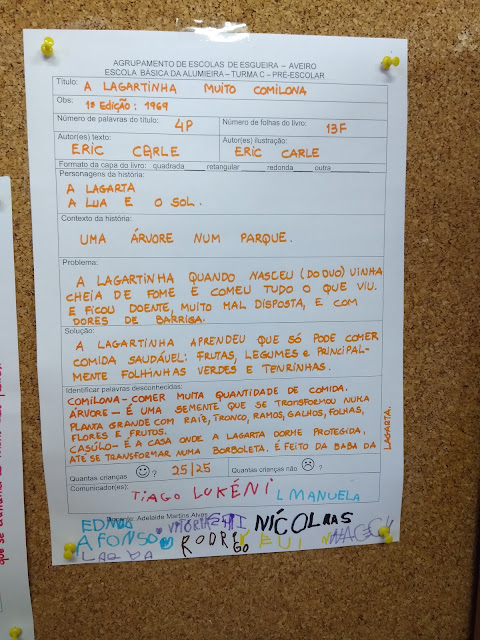 AGRUPAMENTO DE ESCOLAS DE ESGUEIRA – AVEIRO
ESCOLA BÁSICA DA ALUMIEIRA – TURMA C – PRÉ-ESCOLAR
Título: A LAGARTINHA MUITO COMILONA
Obs: 1ª EDIÇÃO: 1969
Número de palavras do título: 4P Número de folhas do livro: 13F
Autor(es) texto: Autor(es) ilustração:
ERIC CARLE ERIC CARLE
Formato da capa do livro: quadrada____ retangular ____ redonda____ outra____
Personagens da história:
A LAGARTA
A LUA E O SOL.
Contexto da história:
UMA ÁRVORE NUM PARQUE.
Problema:
A LAGARTINHA QUANDO NASCEU (DO OVO) VINHA
CHEIA DE FOME E COMEU TUDO O QUE VIU.
E FICOU DOENTE, MUITO MAL DISPOSTA, E COM
DORES DE BARRIGA.
Solução:
A LAGARTINHA APRENDEU QUE SÓ PODE COMER
COMIDA SAUDÁVEL: FRUTAS, LEGUMES e PRINCIPAL-
MENTE FOLHINHAS VERDES E TENRINHAS.
Identificar palavras desconhecidas:
COMILONA – COMER MUITA QUANTIDADE DE COMIDA.
ÁRVORE – É UMA SEMENTE QUE SE TRANSFORMOU NUMA
PLANTA GRANDE COM RAIZ, TRONCO, RAMOS, GALHOS, FOLHAS,
FLORES E FRUTOS.
CASÚLO – É A CASA ONDE A LAGARTA DORME PROTEGIDA,
ATÉ SE TRANSFORMAR NUMA BORBOLETA. É FEITO DA BABA DA
LAGARTA.
Quantas crianças ? 25/25 Quantas crianças não ?
Comunicador(es):
TIAGO LUKÉNI L MANUELA
Adelaide Martins Alves
VITÓRIA NÍCOLAS
AFONSO RODRIGO